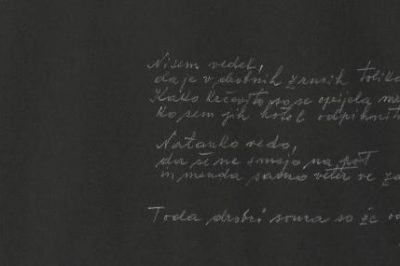 Nisem vedel,
da je v drobnih zrnih toliko
Kako krčevito so se oprijela
ko sem jih hotel odpihniti
Natanko vedo,
da še ne smejo na pot
in menda samo veter ve za
Toda drobni sonca so že